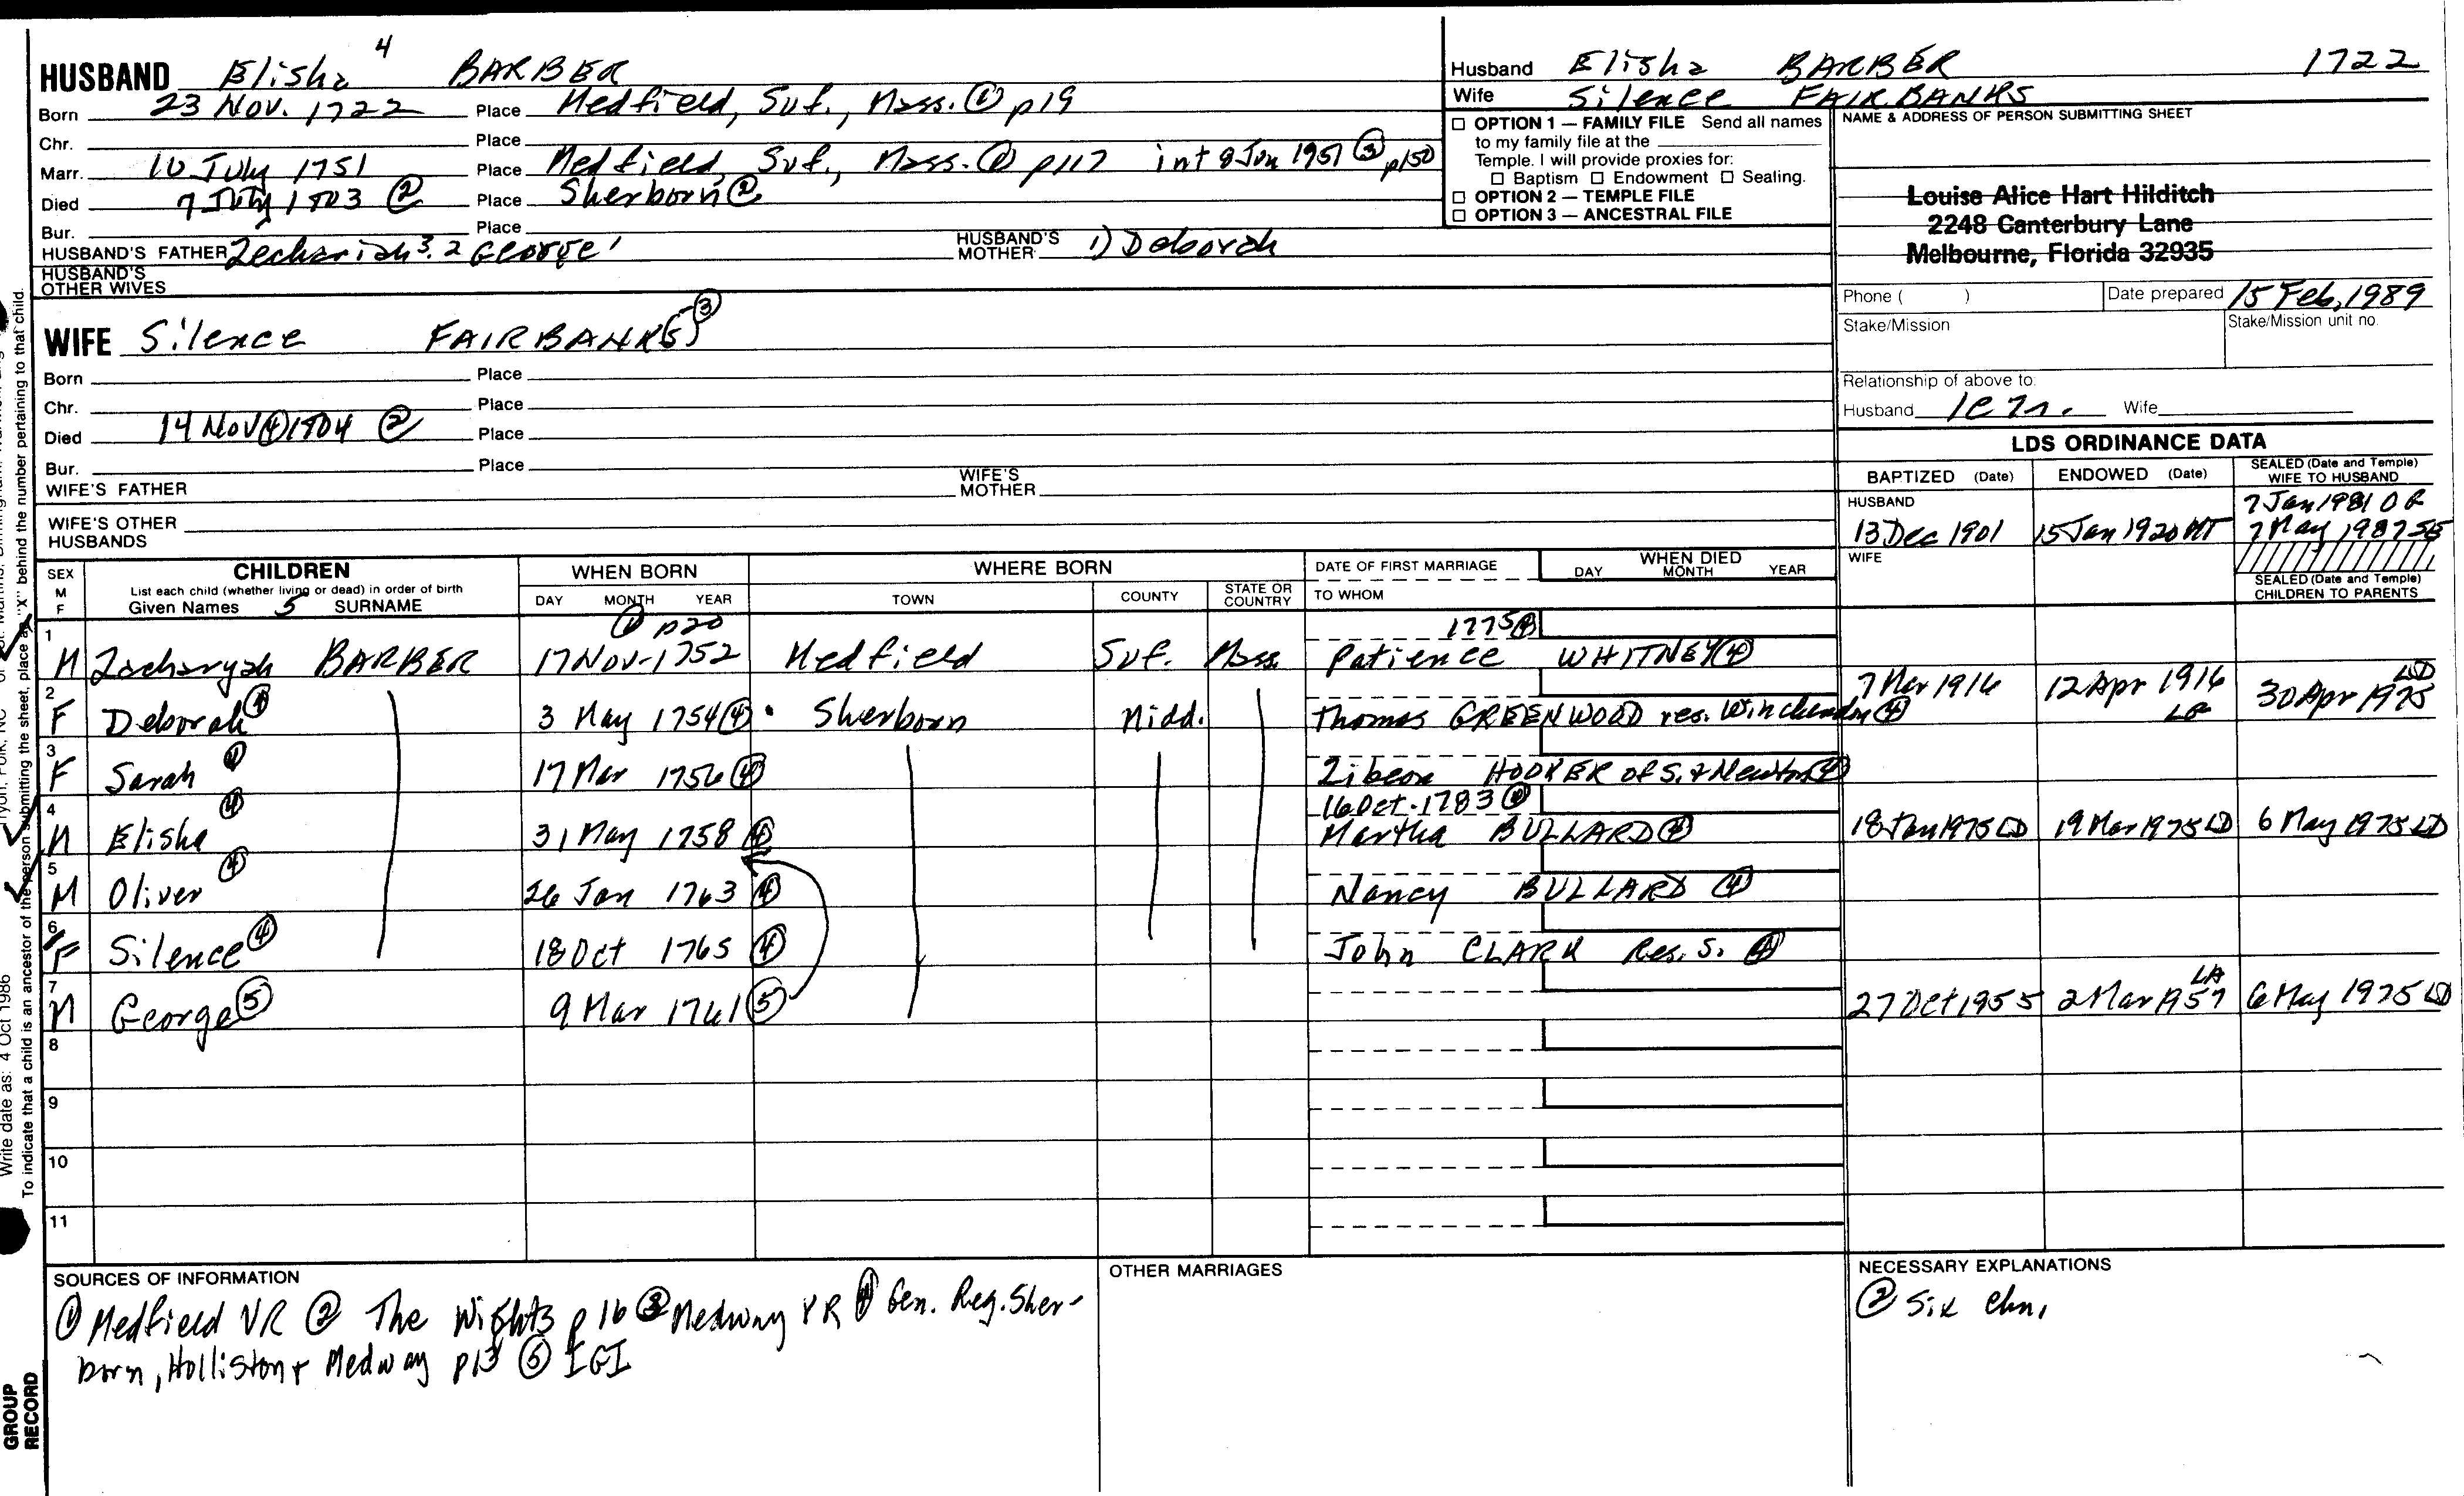 HUSBAND Elisha 4 BARBER
Born 23 Nov. 1722 Place Medfield, Suf., Mass. ① p19
Chr. Place
Marr. 10 July 1751 Place Medfield, Suf., Mass. ① p117 int 8 Jun 1951 ③ p150
Died 7 July 1803 ② Place Sherborn ②
Bur. Place
HUSBAND'S FATHER Zechariah 3. 2 George 1 HUSBAND'S MOTHER 1) Deborah
HUSBAND'S OTHER WIVES
WIFE Silence FAIRBANKS ③
Born Place
Chr. Place
Died 14 Nov ④ 1804 ② Place
Bur. Place
WIFE'S FATHER WIFE'S MOTHER
WIFE'S OTHER HUSBANDS
Husband Elisha BARBER 1722
Wife Silence FAIRBANKS
☐ OPTION 1 — FAMILY FILE Send all names
to my family file at the
Temple. I will provide proxies for:
☐ Baptism ☐ Endowment ☐ Sealing.
☐ OPTION 2 — TEMPLE FILE
☐ OPTION 3 — ANCESTRAL FILE
NAME & ADDRESS OF PERSON SUBMITTING SHEET
Louise Alice Hart Hilditch
2248 Canterbury Lane
Melbourne, Florida 32935
Phone ( ) Date prepared 15 Feb, 1989
Stake/Mission Stake/Mission unit no.
Relationship of above to:
Husband Wife
LDS ORDINANCE DATA
BAPTIZED (Date) ENDOWED (Date) SEALED (Date and Temple) WIFE TO HUSBAND
HUSBAND 7 Jan 1981
13 Dec 1901 15 Jan 1920 7 May 1987
WIFE
SEALED (Date and Temple) CHILDREN TO PARENTS
SEX M F CHILDREN WHEN BORN WHERE BORN DATE OF FIRST MARRIAGE WHEN DIED
List each child (whether living or dead) in order of birth DAY MONTH YEAR TOWN COUNTY STATE OR COUNTRY TO WHOM DAY MONTH YEAR
Given Names 5 SURNAME
① p20 1775 ④
1 M Zacharyah BARBER 17 Nov. 1752 Medfield Suf. Mass Patience WHITNEY ④
2 F Deborah ④ 3 May 1754 ④ Sherborn Midd. Thomas GREENWOOD res. Winchendon ④ 7 Mar 1916 12 Apr 1916 30 Apr 1975
3 F Sarah ④ 17 Mar 1756 ④ Zibeon HOOKER of S. & Newton ④
16 Oct. 1783 ④
4 M Elisha ④ 31 May 1758 ④ Martha BULLARD ④ 18 Jan 1975 LD 19 Mar 1975 LD 6 May 1975 LD
5 M Oliver ④ 26 Jan 1763 ④ Nancy BULLARD ④
6 F Silence ④ 18 Oct 1765 ④ John CLARK Res. S. ④
7 M George ⑤ 9 Mar 1761 ⑤ 27 Oct 1955 2 Mar 1957 LA 6 May 1975 LD
8
9
10
11
SOURCES OF INFORMATION
① Medfield VR ② The Wights p 16 ③ Medway VR ④ Gen. Reg. Sher-
born, Holliston & Medway p13 ⑤ IGI
OTHER MARRIAGES
NECESSARY EXPLANATIONS
② Six chn,
Write date as: 4 Oct 1986
To indicate that a child is an ancestor of the person submitting the sheet, place an "X" behind the number pertaining to that child.
GROUP
RECORD